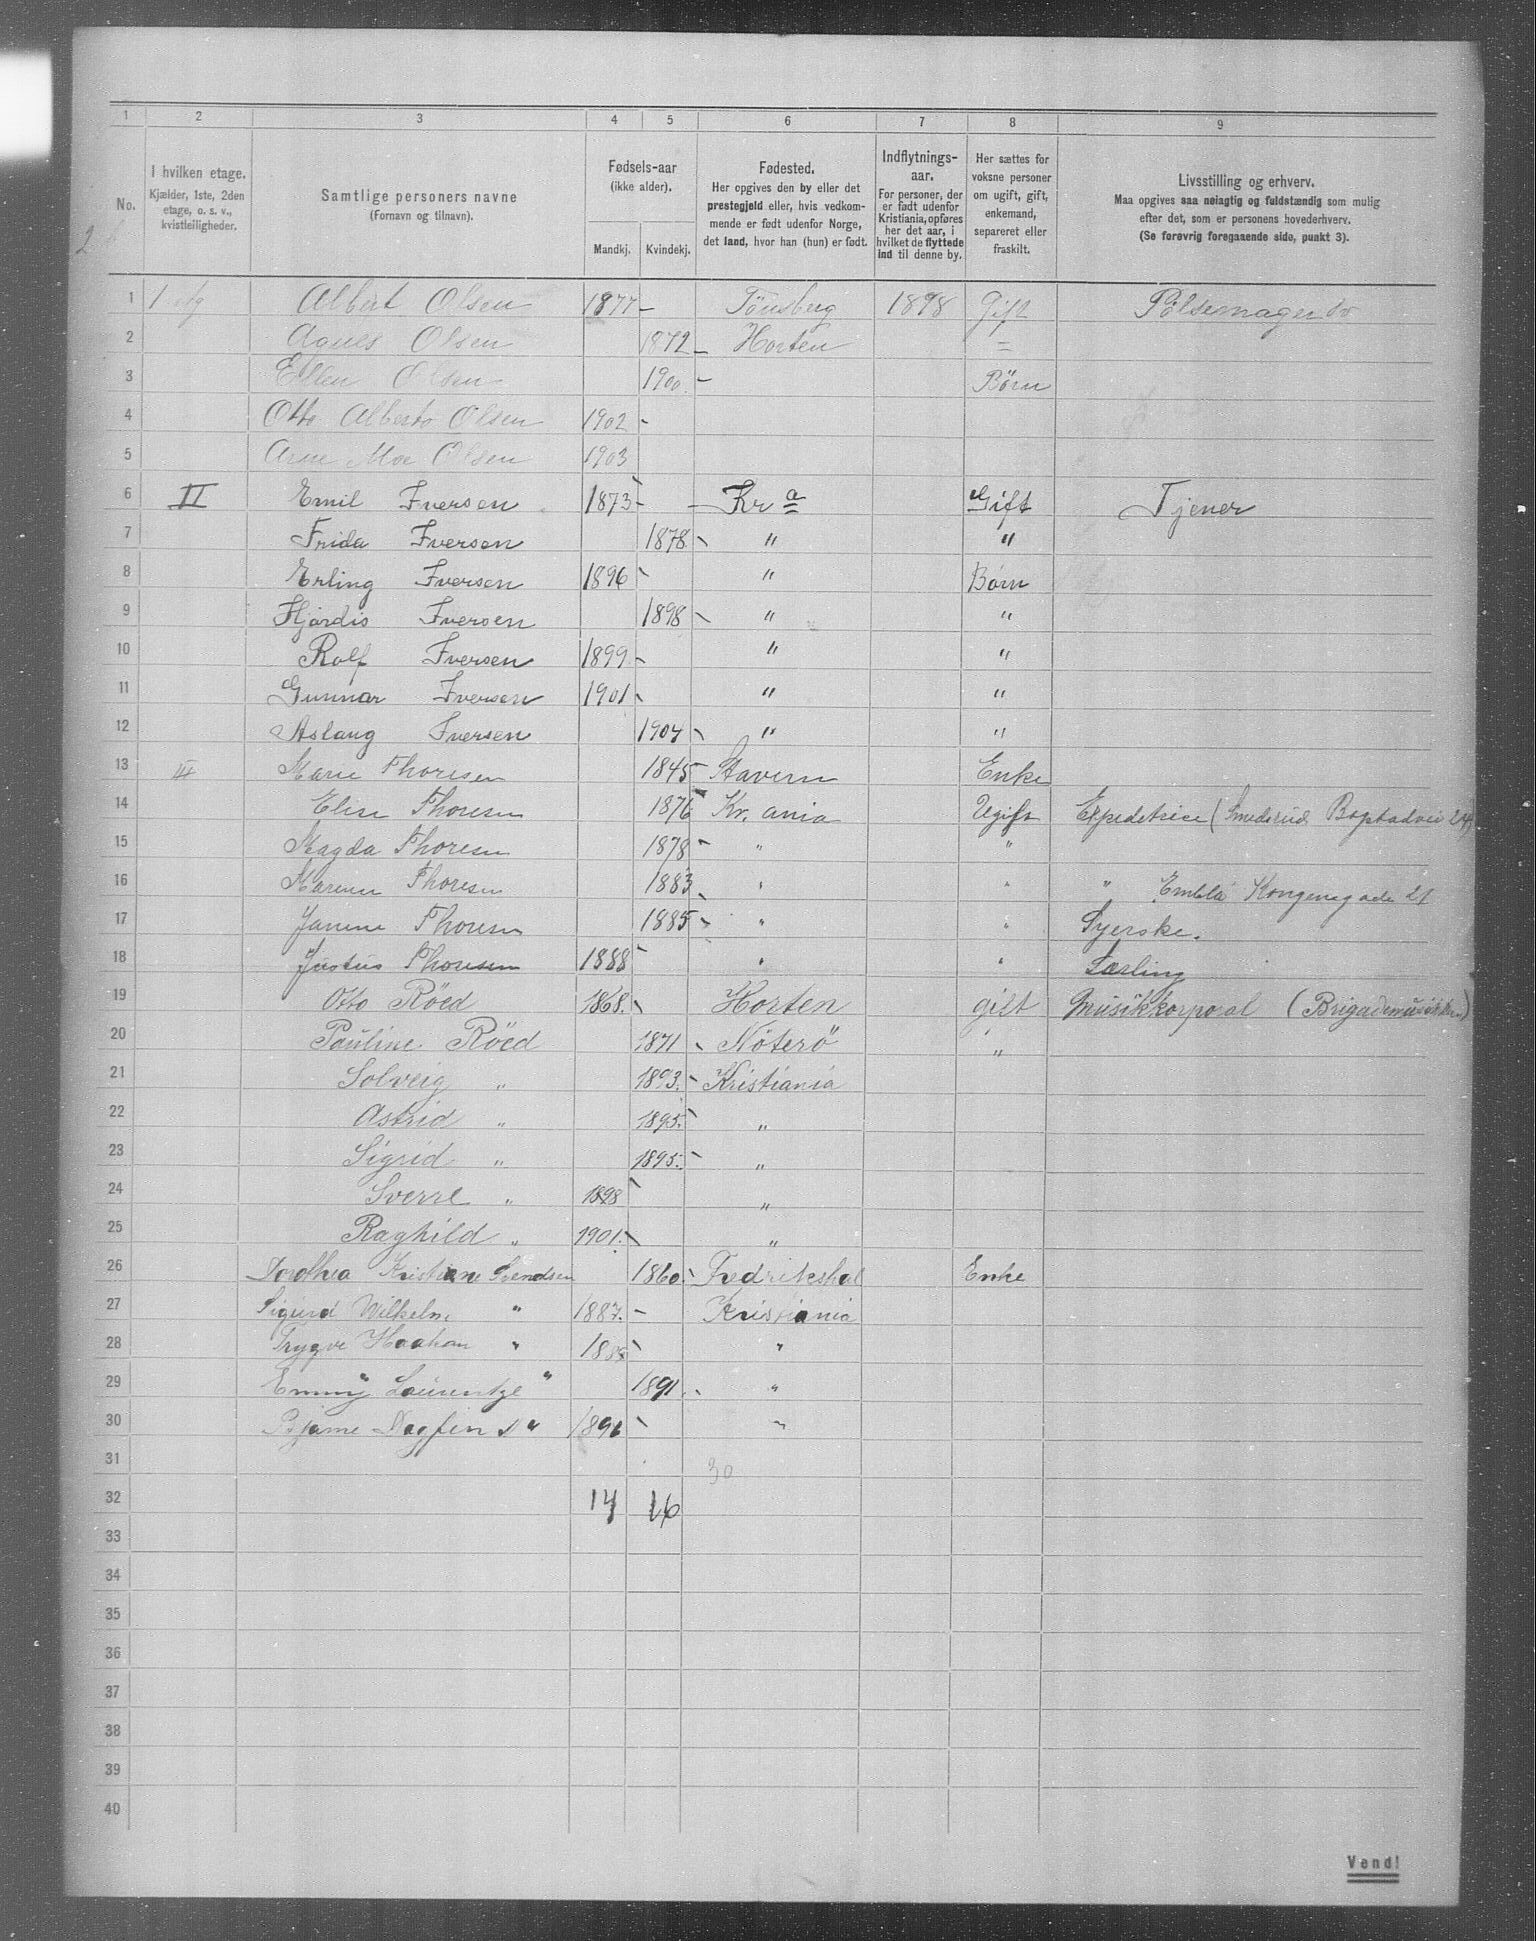 1 2 3 4 5 6 7 8 9
No.
I hvilken etage.
Kjælder, 1ste, 2den
etage, o. s. v.,
kvistleiligheder.
Samtlige personers navne
(Fornavn og tilnavn).
Fødsels-aar
(ikke alder).
Mandkj. Kvindekj.
Fødested.
Her opgives den by eller det
prestegjeld eller, hvis vedkom-
mende er født udenfor Norge,
det land, hvor han (hun) er født.
Indflytnings-
aar.
For personer, der
er født udenfor
Kristiania, opføres
her det aar, i
hvilket de flyttede
ind til denne by.
Her sættes for
voksne personer
om ugift, gift,
enkemand,
separeret eller
fraskilt.
Livsstilling og erhverv.
Maa opgives saa nøiagtig og fuldstændig som mulig
efter det, som er personens hovederhverv.
(Se forøvrig foregaaende side, punkt 3).
2
1 1 etg Albert Olsen 1877 – Tönsberg 1898 Gift Pölsemager
2 Agnes Olsen 1872 – Horten =
3 Ellen Olsen 1900 – Börn
4 Otto Alberto Olsen 1902 -
5 Arne Moe Olsen 1903
6 II Emil Iversen 1873 - – Kra Gift Tjener
7 Frida Iversen 1878 " "
8 Erling Iversen 1896 " Börn
9 Hjördis Iversen 1898 " "
10 Rolf Iversen 1899 " "
11 Gunnar Iversen 1901 " "
12 Aslaug Iversen 1904 " "
13 III Marie Thoresen 1845 Stavern Enke
14 Elise Thoresen 1876 Kr. ania Ugift Expeditrice (Smedsrud 24)
15 Magda Thoresen 1878 " "
16 Thoresen 1883 " " " Embla Kongensgade 21
17 Janine Thoresen 1885 " " Syerske.
18 Justus Thoresen 1888 " " Lærling
19 Otto Röed 1868. Horten gift Musikkorporal (Brigademusikken)
20 Pauline Röed 1871 Nöterö "
21 Solveig " 1893. Kristiania
22 Astrid " 1895. "
23 Sigrid " 1895. "
24 Sverre " 1898 "
25 Raghild " 1901. "
26 Dorothea Kristiane Svendsen 1860. Fredrikshal Enke
27 Sigurd Wilhelm " 1887. – Kristiania
28 Trygve Haakon " "
29 Emmy Laurentze " 1891 "
30 Bjarne Dagfin " "
31 30
32 14 16
33
34
35
36
37
38
39
40
Vend!